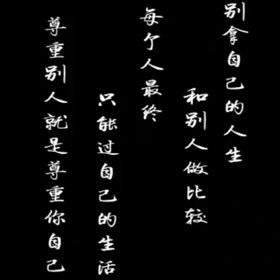 别拿自己的人生
和别人做比较
每个人最终
只能过自己的生活
尊重别人就是尊重你自己